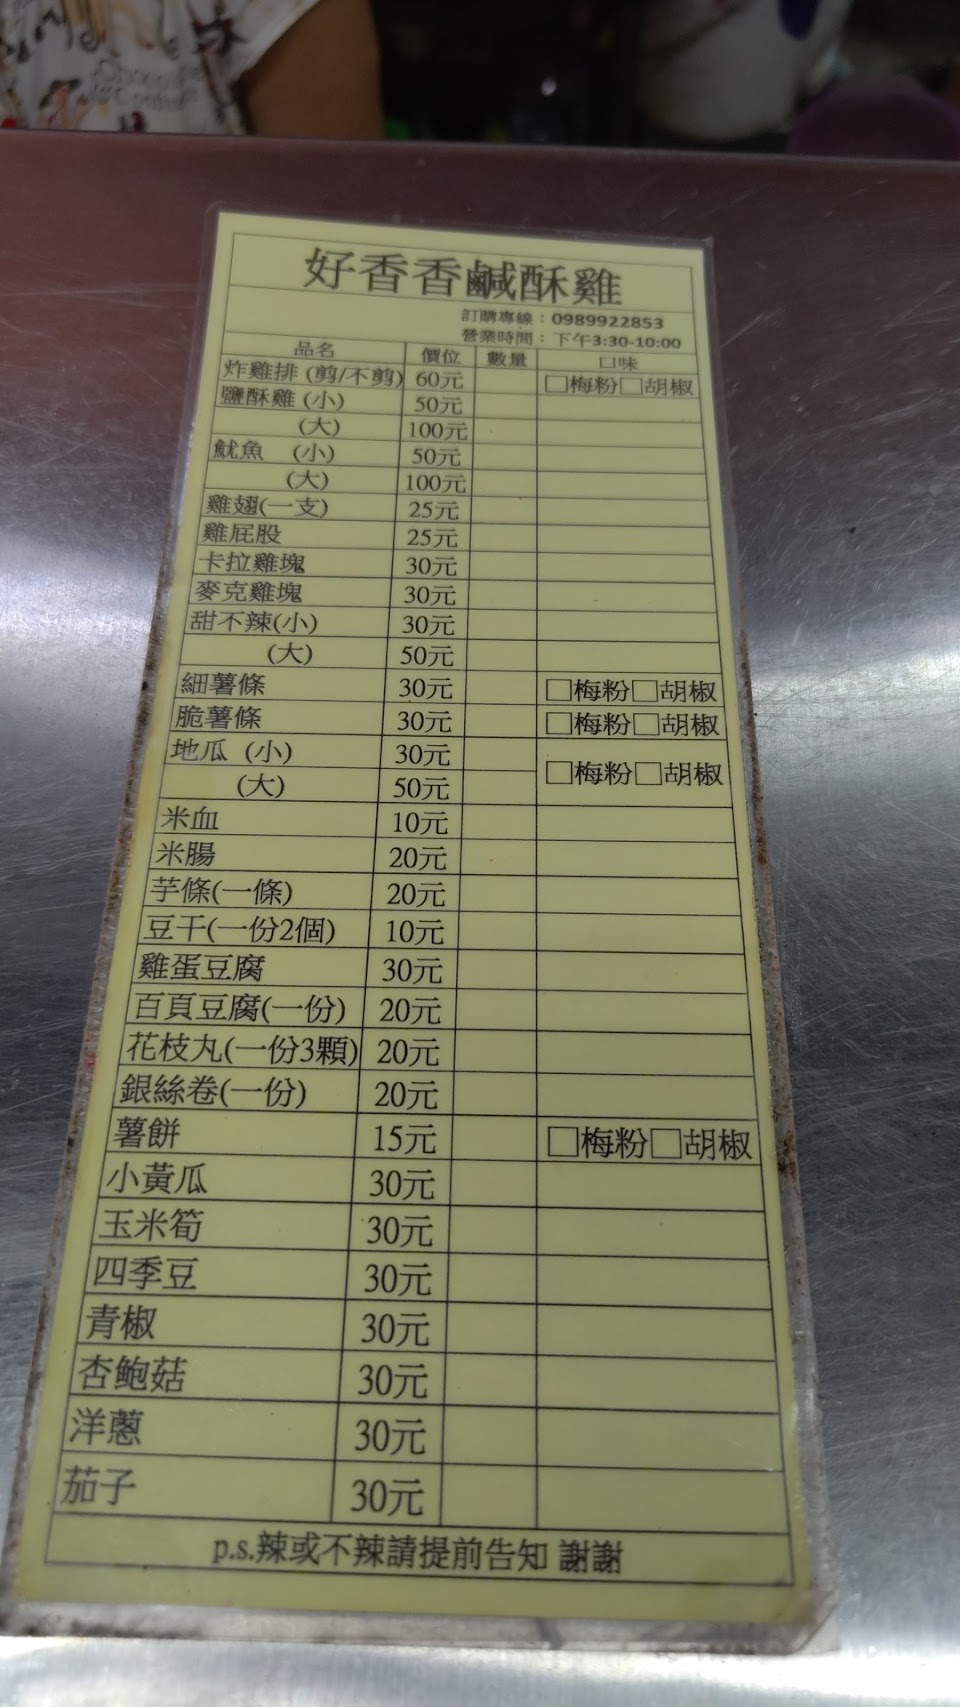 好香香鹹酥雞
訂購專線：0989922853
營業時間：下午3:30-10:00
品名 價位 數量 口味
炸雞排 (剪/不剪) 60元 □梅粉□胡椒
鹽酥雞 (小) 50元
(大) 100元
魷魚 (小) 50元
(大) 100元
雞翅(一支) 25元
雞屁股 25元
卡拉雞塊 30元
麥克雞塊 30元
甜不辣(小) 30元
(大) 50元
細薯條 30元 □梅粉□胡椒
脆薯條 30元 □梅粉□胡椒
地瓜 (小) 30元 □梅粉□胡椒
(大) 50元
米血 10元
米腸 20元
芋條(一條) 20元
豆干(一份2個) 10元
雞蛋豆腐 30元
百頁豆腐(一份) 20元
花枝丸(一份3顆) 20元
銀絲卷(一份) 20元
薯餅 15元 □梅粉□胡椒
小黃瓜 30元
玉米筍 30元
四季豆 30元
青椒 30元
杏鮑菇 30元
洋蔥 30元
茄子 30元
p.s.辣或不辣請提前告知 謝謝